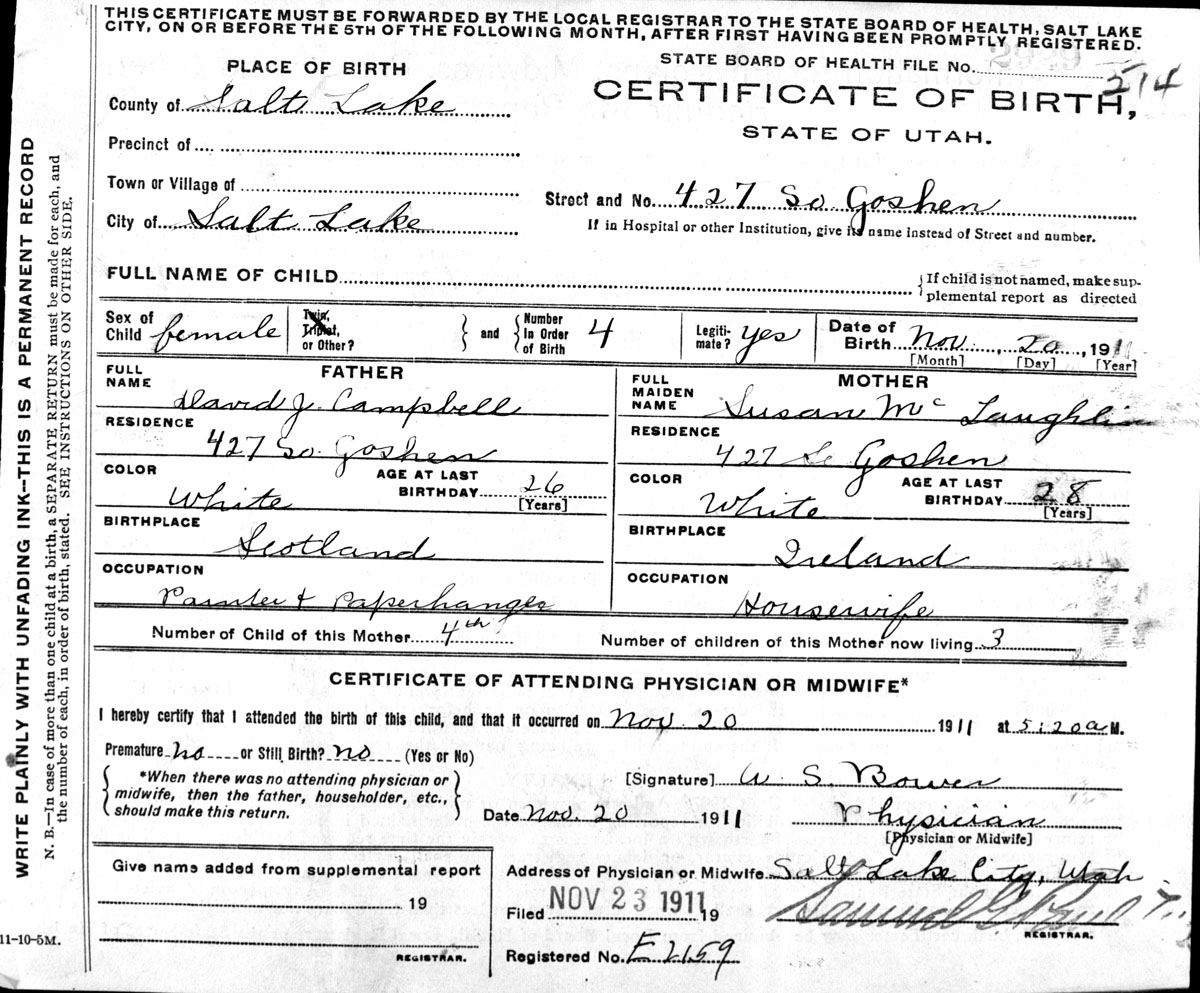 THIS CERTIFICATE MUST BE FORWARDED BY THE LOCAL REGISTRAR TO THE STATE BOARD OF HEALTH, SALT LAKE
CITY, ON OR BEFORE THE 5TH OF THE FOLLOWING MONTH, AFTER FIRST HAVING BEEN PROMPTLY REGISTERED.
STATE BOARD OF HEALTH FILE No. 514
PLACE OF BIRTH
CERTIFICATE OF BIRTH,
STATE OF UTAH.
County of Salt Lake
Precinct of
Town or Village of
Street and No. 427 So Goshen
City of Salt Lake
If in Hospital or other Institution, give its name instead of Street and number.
FULL NAME OF CHILD
{If child is not named, make sup-
plemental report as directed
Sex of Child female
Twin, Triplet, or Other?
and
Number In Order of Birth 4
Legiti-mate? yes
Date of Birth Nov. 20, 1911
[Month] [Day] [Year]
FATHER
FULL NAME
David J. Campbell
RESIDENCE
427 So. Goshen
COLOR
White
AGE AT LAST BIRTHDAY 26
[Years]
BIRTHPLACE
Scotland
OCCUPATION
Painter & Paperhanger
MOTHER
FULL MAIDEN NAME
Susan Mc Laughlin
RESIDENCE
427 So Goshen
COLOR
White
AGE AT LAST BIRTHDAY 28
[Years]
BIRTHPLACE
Ireland
OCCUPATION
Housewife
Number of Child of this Mother 4th
Number of children of this Mother now living 3
CERTIFICATE OF ATTENDING PHYSICIAN OR MIDWIFE*
I hereby certify that I attended the birth of this child, and that it occurred on Nov. 20 1911 at 5:20 a M.
Premature no or Still Birth? no (Yes or No)
*When there was no attending physician or
midwife, then the father, householder, etc.,
should make this return.
[Signature] W S Bower
Date Nov. 20 1911
Physician
[Physician or Midwife]
Give name added from supplemental report
19
REGISTRAR.
Address of Physician or Midwife Salt Lake City, Utah
Filed NOV 23 1911 19
Samuel G Paul
REGISTRAR.
Registered No. E 2159
11-10-5M.
WRITE PLAINLY WITH UNFADING INK--THIS IS A PERMANENT RECORD
N. B.--In case of more than one child at a birth, a SEPARATE RETURN must be made for each, and
the number of each, in order of birth, stated. SEE INSTRUCTIONS ON OTHER SIDE.